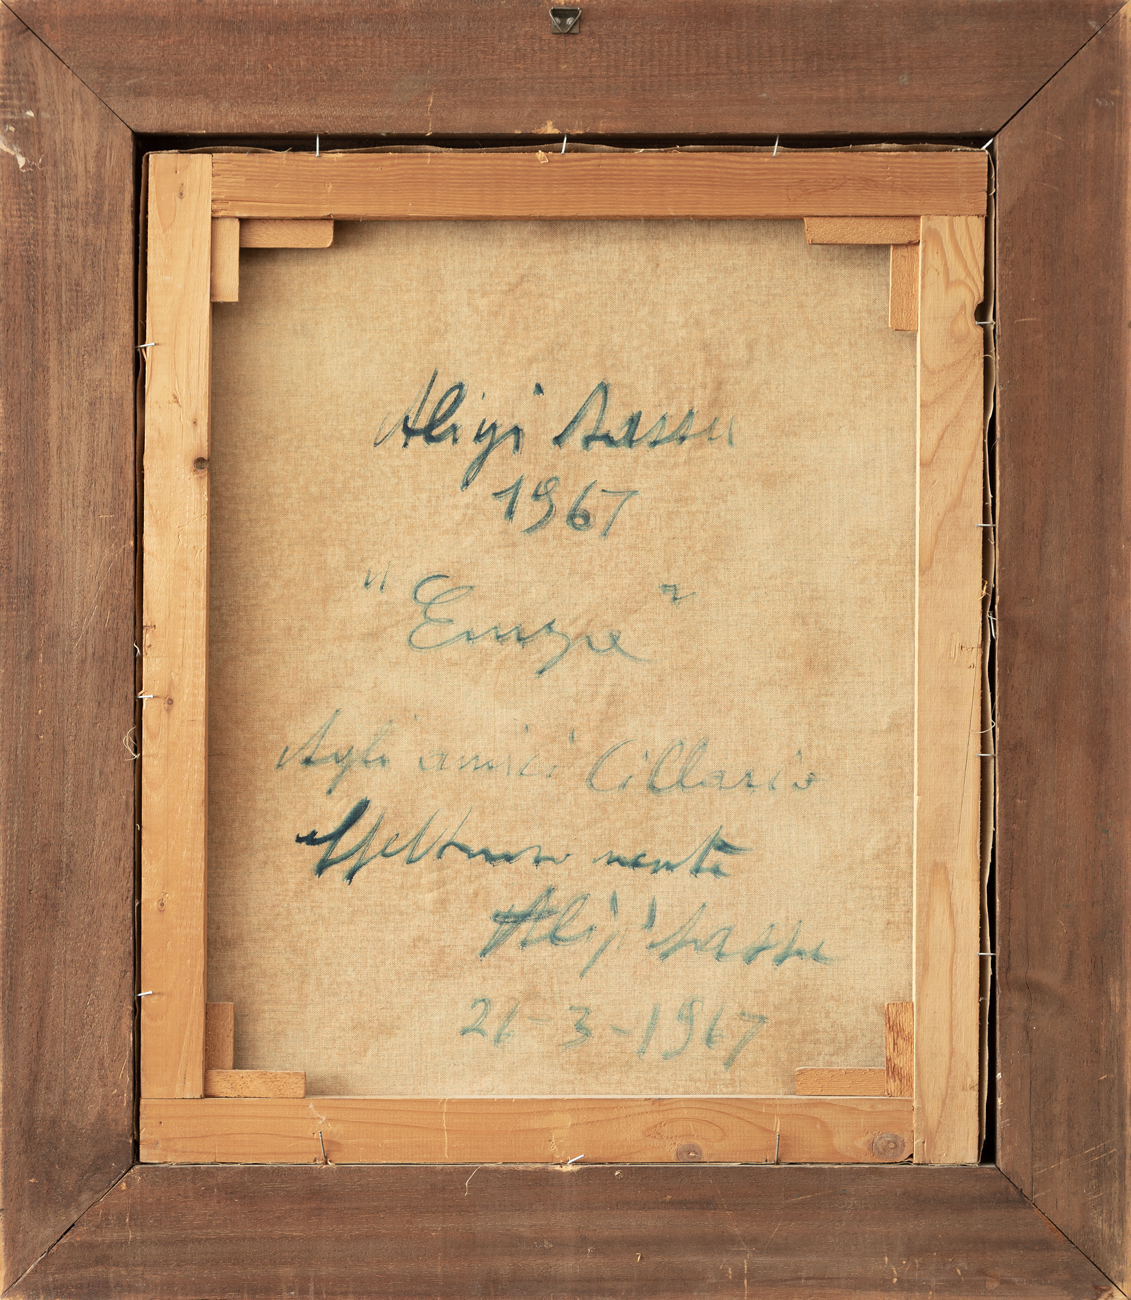 Aligi Sassu
1967
Agli amici Cillario
Affettuosamente
Aligi Sassu
26-3-1967